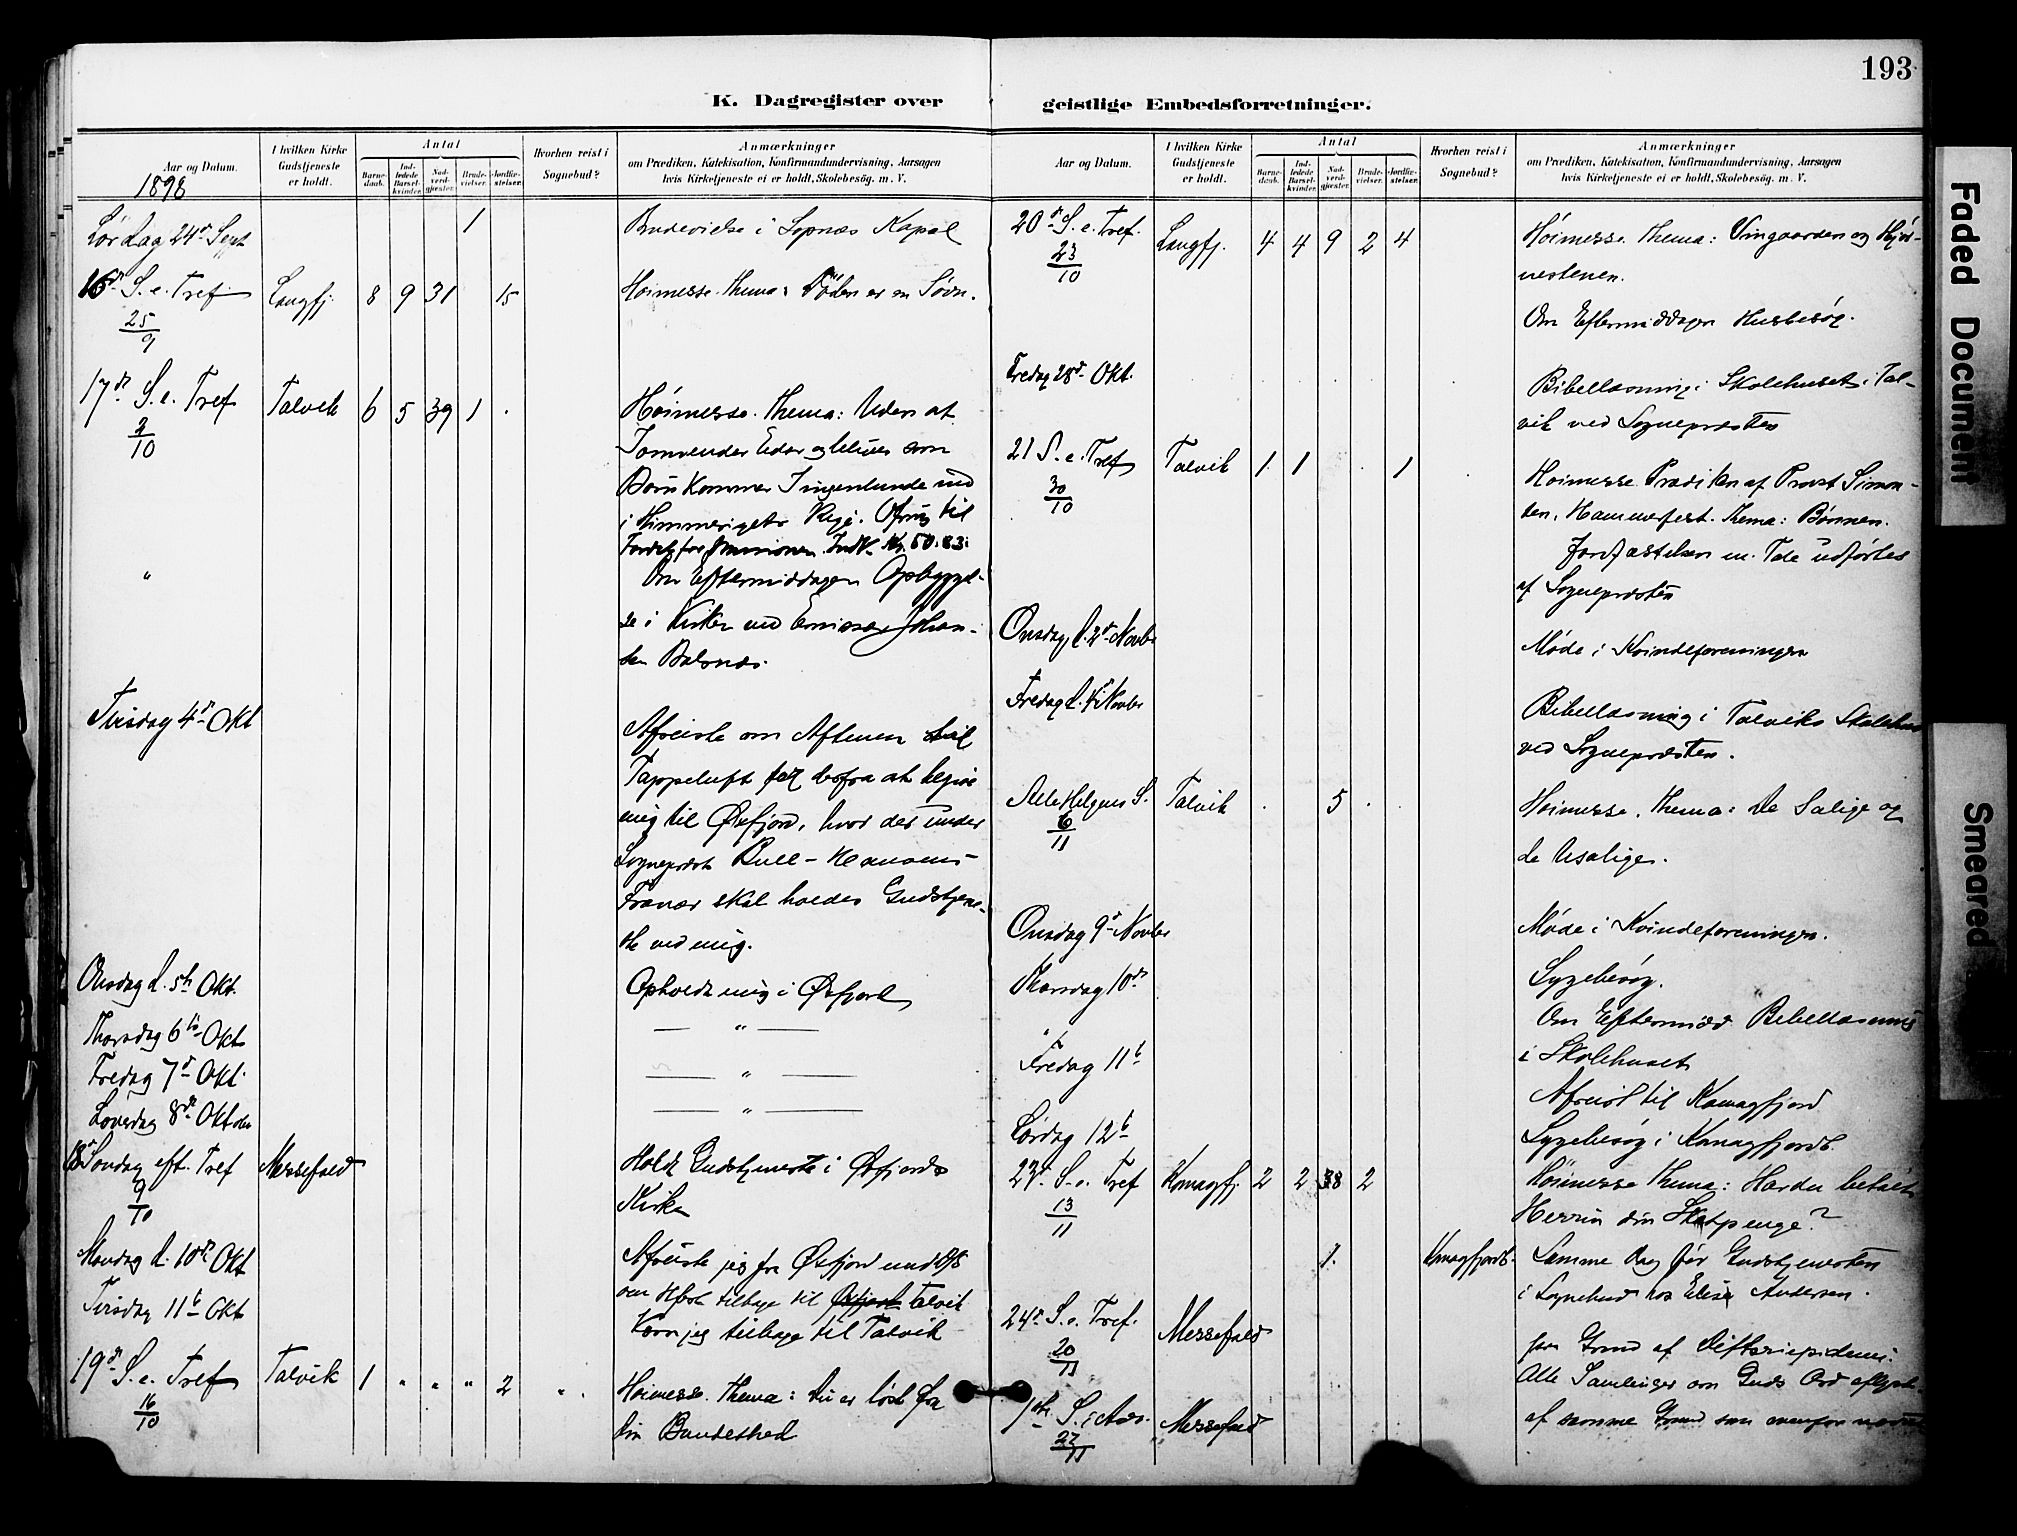 193
K. Dagregister over geistlige Embedsforretninger.
Aar og Datum.
I hvilken Kirke Gudstjeneste er holdt.
Antal
Barne-daab.
Ind-ledede Barsel-kvinder.
Nad-verd-gjester.
Brude-vielser.
Jordfæ-stelser.
Hvorhen reist i Sognebud?
Anmærkninger
om Prædiken, Katekisation, Konfirmandundervisning, Aarsagen
hvis Kirketjeneste ei er holdt, Skolebesøg. m. V.
1898
Lørdag 24de Sept 1 Brudevielse i Sopnæs Kapel
16de S. e. Tref. Langfj. 8 9 31 15 Høimesse. Thema: Døden er en Søvn.
25/9
17de S. e. Tref Talvik 6 5 39 1 . Høimesse. Thema: Uden at
2/10
I omvender Eder og blive som
Børn kommer I ingenlunde ind
i Himmeriges Rige. Ofring til
Indk. Kr. 50.83.
" Om Eftermiddagen Opbyggel-
se i Kirken ved Emissær Johan-
sen Bolsnæs.
Tirsdag 4de Okt
Afreiste om Aftenen til
Tappeluft for derfra at begive
mig til Øxfjord, hvor der under
Sogneprest Bull-Hansens
Fravær skal holdes Gudstjene-
ste ved mig.
Onsdag d. 5te Okt. Opholdt mig i Øxfjord
Thorsdag 6te Okt — " —
Fredag 7de Okt. — " —
Løverdag 8de Oktober — " —
18de Søndag eft. Tref Messefald Holdt Gudstjeneste i Øxfjords
9/10 Kirke
Mandag d. 10de Okt Afreiste jeg fra Øxfjord med D/S
tilbage til Øxfjord Talvik
Tirsdag 11te Okt Kom jeg tilbage til Talvik
19de S. e. Tref Talvik 1 " " " 2 " . Høimesse. Thema: Du er løst fra
16/10 din Bundethed
Aar og Datum.
I hvilken Kirke Gudstjeneste er holdt.
Antal
Barne-daab.
Ind-ledede Barsel-kvinder.
Nad-verd-gjester.
Brude-vielser.
Jordfæ-stelser.
Hvorhen reist i Sognebud?
Anmærkninger
om Prædiken, Katekisation, Konfirmandundervisning, Aarsagen
hvis Kirketjeneste ei er holdt, Skolebesøg. m. V.
20de S. e. Tref. Langfj. 4 4 9 2 4 Høimesse. Thema: Vingaarden og Hjør-
23/10 nestenen.
Om Eftermiddagen Husbesøg.
Fredag 28de Okt. Bibellæsning i Skolehuset i Tal-
vik ved Sognepræsten
21 S. e. Tref Talvik 1. 1 . 1 Høimesse. Prædiken af Provst Simon-
30/10 sen, Hammerfest. Thema: Bønnen.
Jordfæstelsen m. Tale udførtes
af Sognepræsten
Onsdag d. 2den Novbr Møde i Kvindeforeningen
Fredag d. 4de Novbr Bibellæsning i Talviks Skolehus
ved Sognepræsten.
Alle Helgens S. Talvik . 5 . . Høimesse. Thema: De Salige og
6/11 de Usalige.
Onsdag 9de Novbr Møde i Kvindeforeningen.
Thorsdag 10de Sygebesøg.
" Om Eftermidd Bibellæsning
i Skolehuset
Fredag 11te Afreist til Komagfjord
Lørdag 12te Sygebesøg i Komagfjord.
23de S. e. Tref Komagfj. 2 2 38 2 Høimesse Thema: Har du betalt
13/11 Herren din Skatpenge?
1. Komagfjord. Samme Dag før Gudstjenesten
i Sognebud hos Elisa Andersen.
24de S. e. Tref. Messefald paa Grund af Difteriepidemi.
20/11 Alle Samlinger om Guds Ord aflyst.
1ste S. i Adv. Messefald af samme Grund som ovenfor nævnt
27/11
Faded Document
Smeared